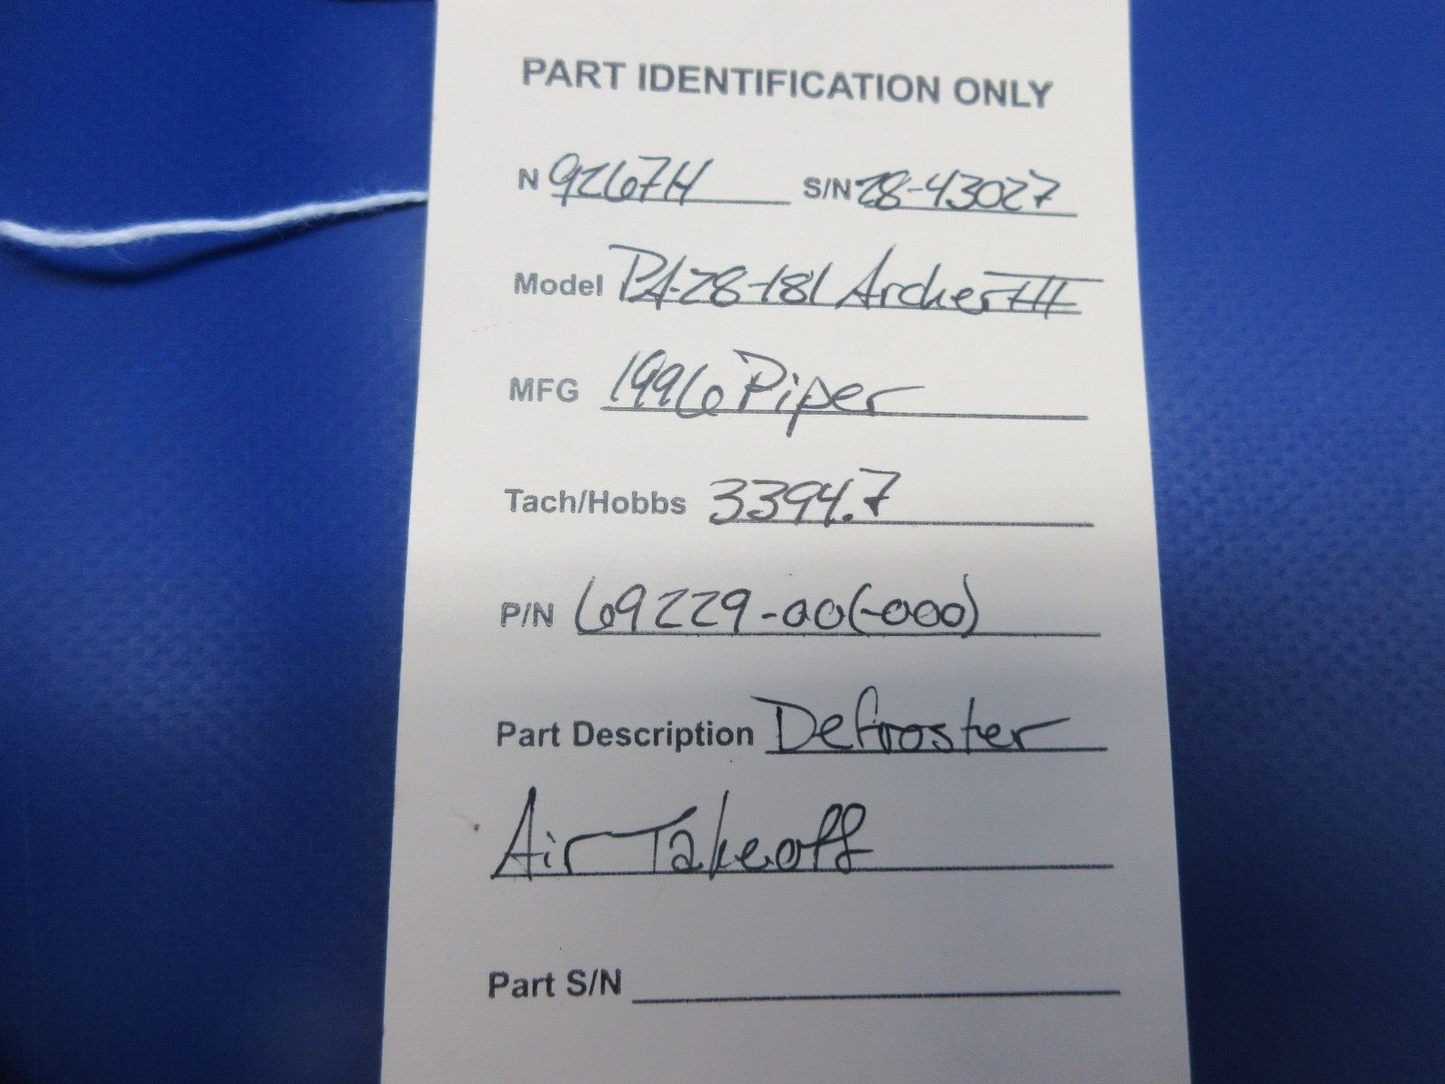 PART IDENTIFICATION ONLY
N 9267H S/N 28-43027
Model PA-28-181 Archer III
MFG 1996 Piper
Tach/Hobbs 3394.7
P/N 69229-00(-000)
Part Description Defroster
Air Takeoff
Part S/N